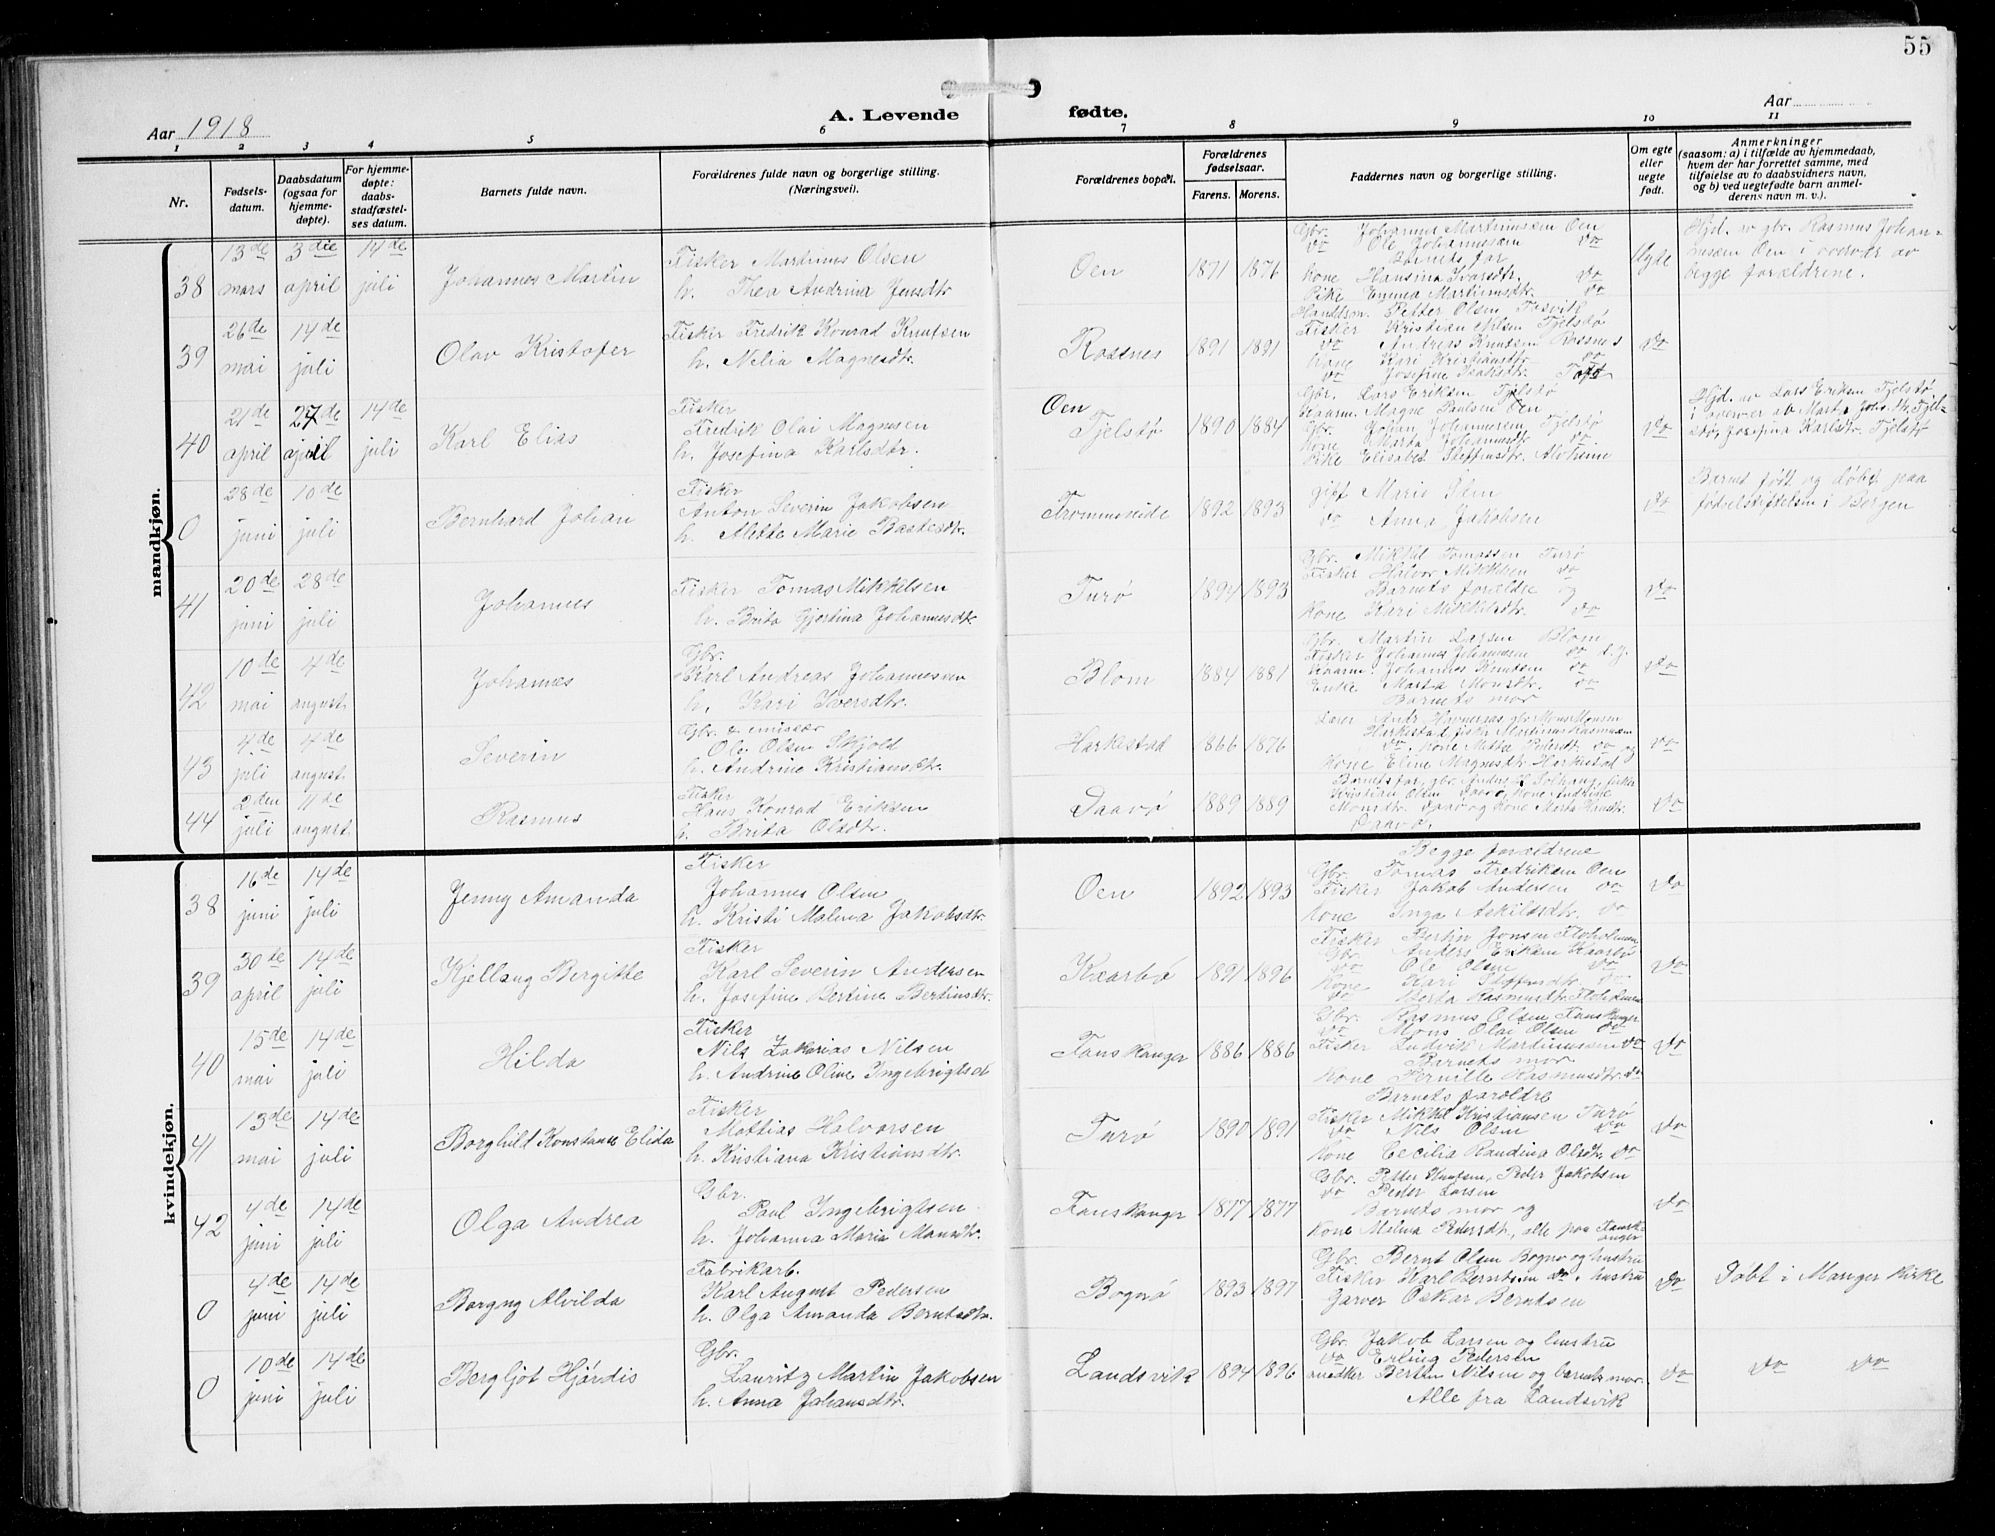 55
Aar 1918
A. Levende fødte.
Aar
1 2 3 4 5 6 7 8 9 10 11
Nr.
Fødsels-
datum.
Daabsdatum
(ogsaa for
hjemme-
døpte).
For hjemme-
døpte:
daabs-
stadfæstel-
ses datum.
Barnets fulde navn.
Forældrenes fulde navn og borgerlige stilling.
(Næringsvei).
Forældrenes bopæl.
Forældrenes
fødselsaar.
Farens. Morens.
Faddernes navn og borgerlige stilling.
Om egte
eller
uegte
født.
Anmerkninger
(saasom: a) i tilfælde av hjemmedaab,
hvem der har forrettet samme, med
tilføielse av to daabsvidners navn,
og b) ved uegtefødte barn anmel-
derens navn m. v.).
mandkjøn.
38
13de mars
3die april
14de juli
Johannes Martin
Fisker Martinus Olsen
h. Thea Andrina Jensdtr
Oen
1871 1876
Gbr. Johannes Martinussen Oen
do Ole Johannessen do
Barnets far
Kone Hansina Ivarsdtr. do
Pike Emma Martinusdtr. do
Hjd. av gbr. Rasmus Johan-
nesen Oen i overvær av
begge forældrene.
39
26de mai
14de juli
Olav Kristofer
Fisker Fredrik Konrad Knutsen
h. Nelia Magnesdtr.
Rossnes
1891 1891
Petter Olsen
Fisker Kristian Nilsen Tjelstø
do Andreas Knutsen Rossnes
Kone Kari Kristiansdtr do
do Josefine Isaksdtr.
do
40
21de april
27de april
14de juli
Karl Elias
Fisker
Fredrik Olai Magnesen
h. Josefina Karlsdtr.
Oen
Tjelstø
1890 1884
Gbr. Lars Eriksen Tjelstø
Kaarm. Magne Paulsen Oen
Gbr. Johan Johannesen Tjelstø
Kone Marta Johannesdtr do
Pike Elisabet Steffensdtr. Alvheim
do
Hjd. av Lars Eriksen Tjelstø
i overvær av Marta Johs.dtr. Tjel-
stø, Josefina Karlsdtr. Tjelstø
0
28de juni
10de juli
Bernhard Johan
Fisker
Anton Severin Jakobsen
h. Mette Marie
Trommsneide
1892 1893
gift Marie
do Anna Jakobsen
do
Barnet født og døbt paa
fødselsstiftelsen i Bergen
41
20de juni
28de juli
Johannes
Fisker Tomas Mikkelsen
h. Brita Gjertina Johannesdtr.
Turø
1894 1893
Gbr. Mikkel Tomassen Turø
Fisker Halvor Mikkelsen do
Barnets forældre og
Kone Kari Mikkelsdtr. do
do
42
10de mai
4de august
Johannes
Gbr.
Karl Andreas Johannessen
h. Kari Iversdtr.
Blom
1884 1881
Gbr. Martin Larsen Blom
Fisker Johannes Johannesen do d.y.
Kaarm. Johannes Knutsen do
Enke Marta Monsdtr. do
Barnets mor
do
43
4de juli
4de august
Severin
Gbr & emisær
Ole Olsen Skjold
h. Andrine Kristiansdtr.
Herkestad
1866 1876
Lærer Andr. gbr Mons Monsen
Herkestad, fisker Martinus Rasmussen
do. Kone Metta Pedersdt. do og
Kone Eline Magnesdtr Herkestad
do
44
2den juli
11de august
Rasmus
Fisker
Hans Konrad Eriksen
h. Brita Olsdtr.
Daavø
1889 1889
Barnets far, gbr. Anders fisker
Kristian Olsen Daavø, Kone
Monsdtr. Daavø og Kone Marta Knutsdtr.
Daavø.
do
kvindekjøn.
38
16de juni
14de juli
Jenny Amanda
Fisker
Johannes Olsen
h. Kristi Malena Jakobsdtr.
Oen
1892 1893
Begge forældrene
Gbr. Tomas Fredriksen Oen
Fisker Jakob Andersen do
Kone Inga Askildsdtr. do
do
39
30de april
14de juli
Kjellaug Bergitte
Fisker
Karl Severin Andersen
h. Josefine Bertine Bertinsdtr.
Kaarbø
1891 1896
Fisker Bertin Jonsen Floholmen
Gbr. Anders Eriksen Kaarbø
do Ole Olsen do
Kone Kari Steffensdtr. do
do Berta Rasmusdtr. Floholmen
do
40
15de mai
14de juli
Hilda
Fisker
Nils Zakarias Nilsen
h. Andrine Oline Ingebrigtsd
Fanskanger
1886 1886
Gbr. Rasmus Olsen Fanskanger
do Mons Olai Olsen do
Fisker Ludvik Martinussen do
Barnets mor
Kone Pernille Rasmusdtr. do
do
41
13de mai
14de juli
Borghild Konstanse Elida
Fisker
Mattias Halvorsen
h. Kristiana Kristiansdtr.
Turø
1890 1891
Barnets foræ­ldre
Fisker Mikkel Kristiansen Turø
do Nils Olsen do
Kone Cecilia Randina Olsdtr. do
do
42
4de juni
14de juli
Olga Andrea
Gbr.
Paul Ingebrigtsen
h. Johanna Maria Mansdtr.
Fanskanger
1877 1877
Gbr. Petter Knutsen, Peder Jakobsen
do Peder Larsen
Barnets mor og
Kone Malena Pedersdtr, alle paa Fansk-
anger
do
0
4de juni
14de juli
Borgny Alvilda
Fabrikarb.
Karl August Pedersen
h. Olga Amanda Berntsdtr.
Bognø
1893 1897
Gbr. Bernt Olsen Bognø og hustru
Fisker Karl Berntsen do. hustru
Garver Oskar Berntsen
do
Døbt i Manger kirke
0
10de juni
14de juli
Bergljot Hjørdis
Gbr.
Lauritz Martin Jakobsen
h. Anna Johansdtr.
Landsvik
1894 1896
Gbr. Jakob Larsen og hustru
do Erling Pedersen
snedker Bertin Nilsen og barnets mor.
Alle fra Landsvik
do
do do